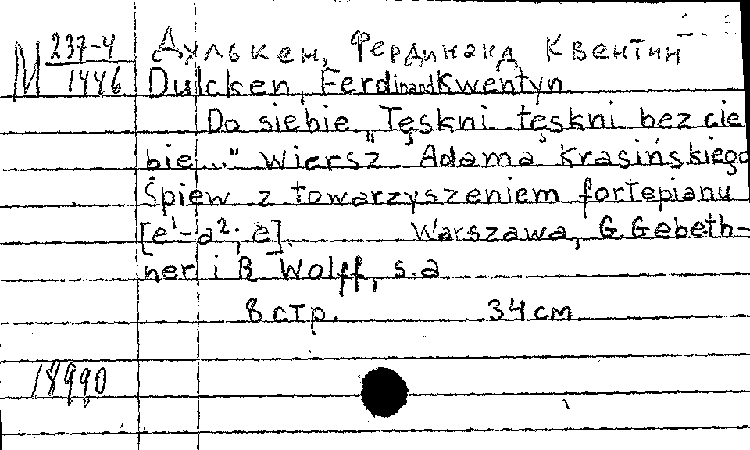 М 237-4/1446
Дулькен, Фердинанд Квентин
Dulcken, Ferdinand Kwentyn
Do siebie „Tęskni tęskni bez cie
bie..." Wiersz Adama Krasińskiego
Śpiew z towarzyszeniem fortepianu
[e¹-a²; e]. Warszawa, G. Gebeth-
ner i R Wolff, s.a
8 стр. 34 см
18990